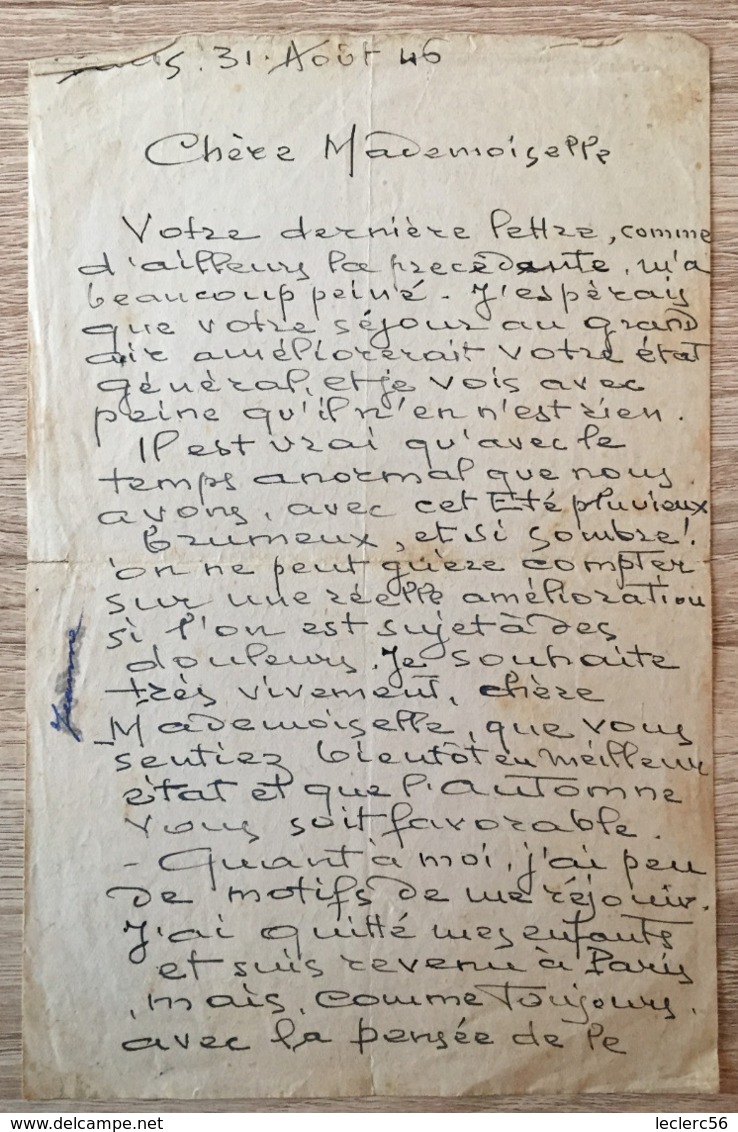 31. Août 46
Chère Mademoiselle
Votre dernière lettre, comme
d'ailleurs la precèdante, m'a
beaucoup peiné. J'espèrais
que votre séjour au grand
air améliorerait votre état
général, et je vois avec
peine qu'il n'en n'est rien.
Il est vrai qu'avec le
temps anormal que nous
avons, avec cet Eté pluvieux
brumeux, et si sombre!
on ne peut guère compter
sur une réelle amélioration
si l'on est sujet à des
douleurs. Je souhaite
très vivement, chère
Mademoiselle, que vous
sentiez bientôt en meilleur
état et que l'automne
vous soit favorable.
- Quant à moi, j'ai peu
de motifs de me réjouir.
J'ai quitté mes enfants
et suis revenu à Paris
, mais, comme toujours,
avec la pensée de le
Jeanne
delcampe.net
leclerc56